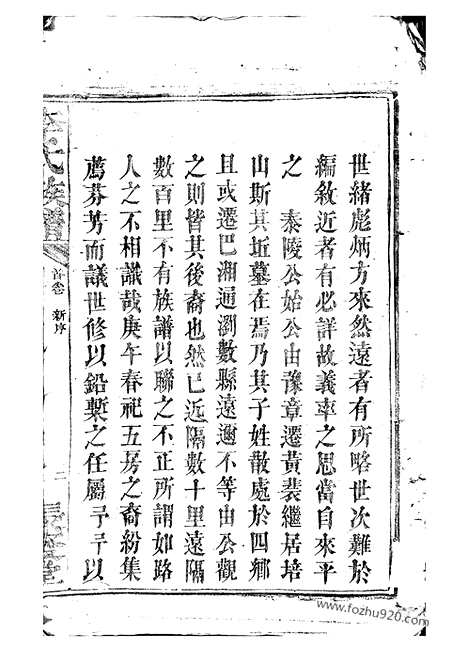 世緒彪炳方來然遠者有所略世次難於
編敘近者有必詳故義率之思當自來平
之　泰陵公始公由豫章遷黃裴繼居培
山斯其坵墓在焉乃其子姓散處於四鄉
且或遷巴湘通瀏數縣遠邇不等由公觀
之則皆其後裔也然已近隔數十里遠隔
數百里不有族譜以聯之不正所謂如路
人之不相識哉庚午春祀五房之裔紛集
薦芬芳而議世修以鉛槧之任屬予予以
李氏族譜
首卷　新序
https://www.fozhu920.com/